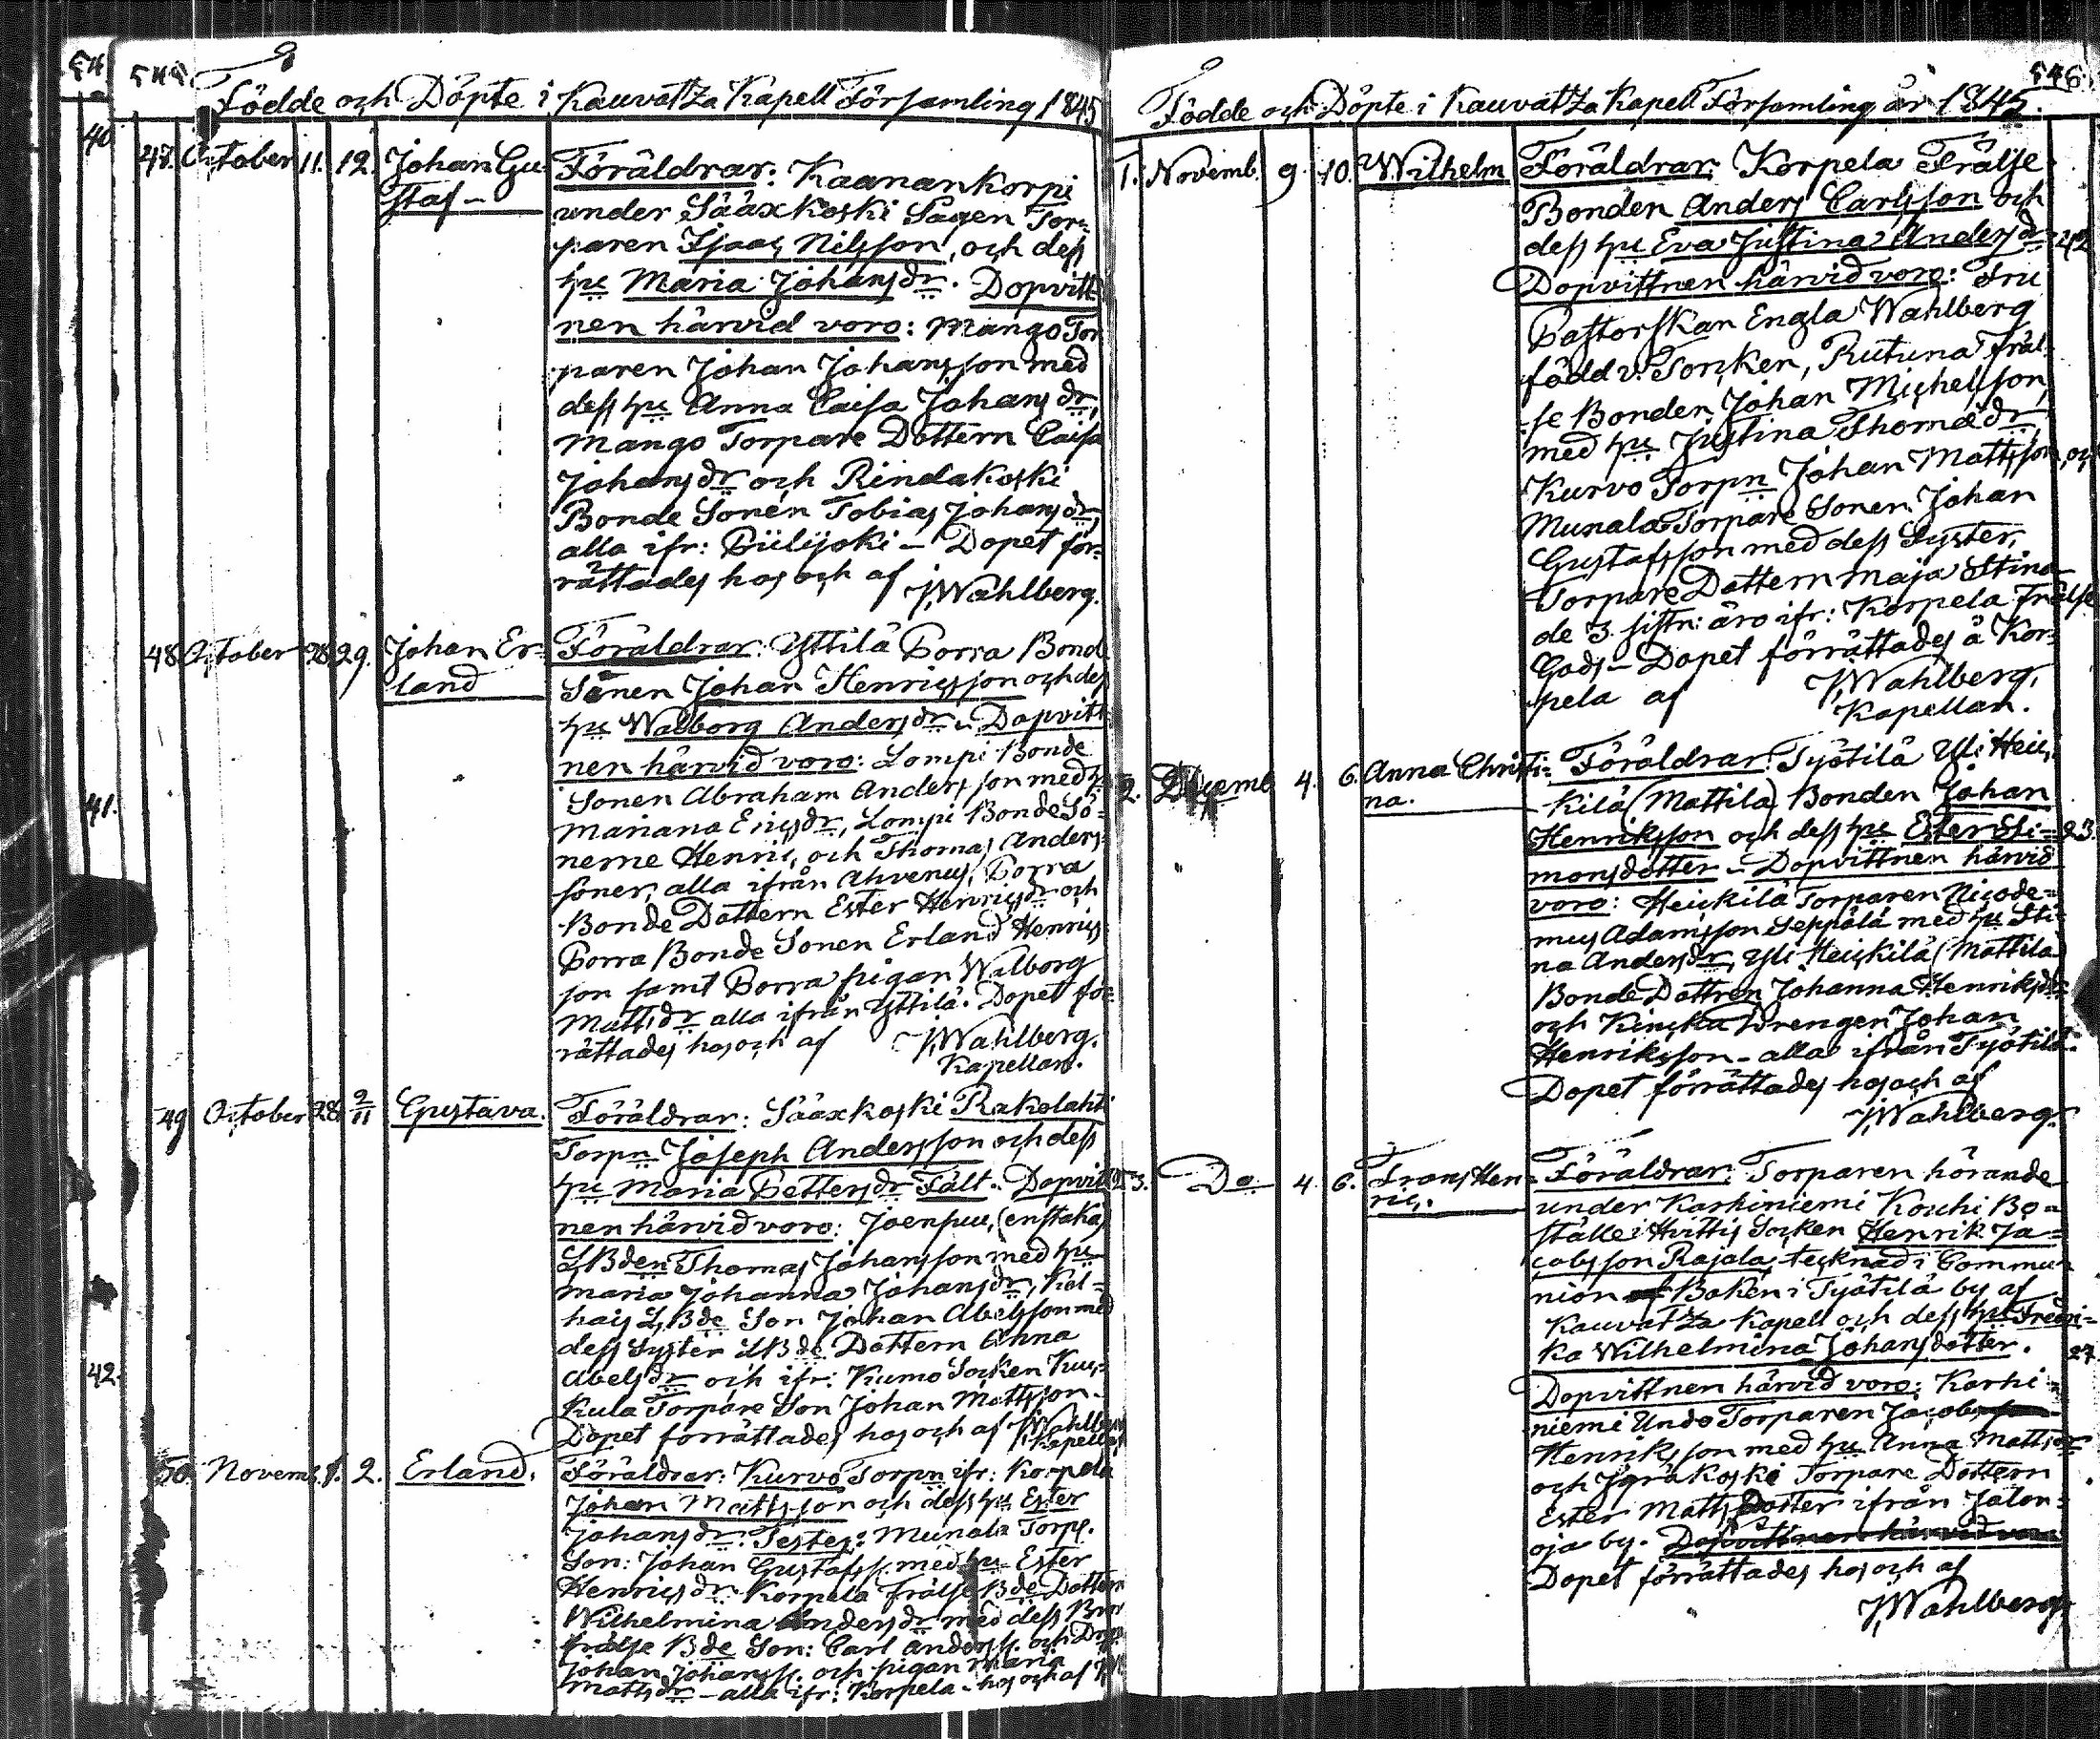 545
Födde och Döpte i Kauvatza Kapell Församling 1845
40
47. October 11. 12. Johan Gu-
staf -
Föräldrar: Kaanankorpi
under Sääxkoski Sagen Tor-
paren Isaac Nilsson, och dess
hu Maria Johansdr. Dopvitt
nen härvid voro: Mango Tor
paren Johan Johansson med
dess hu Anna Caisa Johansdr,
Mango Torpare Dottern Caisa
Johansdr och Rindakoski
Bonde Sonen Tobias Johansdr,
alla ifr: Piilijoki - Dopet för-
rättades hos och af JWahlberg.
48 October 28 29. Johan Er-
land
Föräldrar: Yttilä Porra Bonde
Sonen Johan Henricsson och dess
hu Walborg Andersdr - Dopvitt
nen härvid voro: Lompi Bonde
Sonen Abraham Andersson med h
Mariana Ericsdr, Lompi Bonde Sö-
nerne Henric, och Thomas Anders-
soner, alla ifrån Ahvenus, Porra
Bonde Dottern Ester Henricsdr och
Porra Bonde Sonen Erland Henrics
son samt Porra pigan Walborg
Mattsdr alla ifrån Yttilä. Dopet för-
rättades hos och af JWahlberg.
Kapellan.
41.
49 October 28 2/11 Gustava.
Föräldrar: Sääxkoski Rakelahti
Torpn Joseph Andersson och dess
hu Maria Pettersdr Fält. Dopvitt
nen härvid voro: Joenpuu, (enstaka)
L,Bden Thomas Johansson med hu
Maria Johanna Johansdr, Kol-
hais L,Bde Son Johan Abelsson med
dess Syster LBde Dottern Anna
Abelsdr och ifr: Kumo Socken Kuc-
kula Torpare Son Johan Mattsson.
Dopet förrättades hos och af JWahlberg
Kapellan
42.
50. Novem. 1. 2. Erland.
Föräldrar: Kurvo Torpn ifr: Korpela
Johan Mattsson och dess hu Ester
Johansdr. Testes: Munala Torp.
Son: Johan Gustafss. med hu Ester
Henricsdr Korpela Frälse Bde Dottern
Wilhelmina Andersdr med dess Bror
Frälse Bde Son: Carl Anderss. och
Johan Johanss. och pigan Maria
Mattsdr - alla ifr: Korpela - hos och af
546.
Födde och Döpte i Kauvatza Kapell Församling år 1845.
1. Novemb. 9. 10. Wilhelm
Föräldrar: Korpela Frälse
Bonden Anders Carlsson och
dess hu Eva Justina Andersdr 42
Dopvittnen härvid voro: Fru
Pastorskan Engla Wahlberg
född v. Toncken, Rutuna Fräl-
se Bonden Johan Michelsson,
med hu Justina Thomædr,
Kurvo Torpn Johan Mattsson, och
Munala Torpare Sonen Johan
Gustafsson med dess Syster,
Torpare Dottern Maja Stina
de 3 sistn: äro ifr: Korpela Frälse
Gods - Dopet förrättades å Kor-
pela af JWahlberg,
Kapellan.
2. Decemb 4. 6. Anna Christi-
na.
Föräldrar: Työtilä Yli Heic-
kilä (Mattila) Bonden Johan
Henriksson och dess hu Ester Si- 23.
monsdotter - Dopvittnen härvid
voro: Heickilä Torparen Nicode-
mus Adamsson Seppälä med hu Sti-
na Andersdr, Yli Heickilä (Mattila)
Bonde Dottren Johanna Henriksdr
och Kincka Drengen Johan
Henriksson - alla ifrån Työtilä.
Dopet förrättades hos och af
JWahlberg.
3. Do 4. 6. Frans Hen-
ric.
Föräldrar: Torparen hörande
under Karhiniemi Kouhi Bo-
ställe i Hvittis Socken Henrik Ja-
cobsson Rajala, tecknad i Commu-
nion Boken i Työtilä by af
Kauvatza Kapell och dess hu Fredri-
ka Wilhelmina Johansdotter. 27
Dopvittnen härvid voro: Karhi-
niemi Undo Torparen Jacob
Henriksson med hu Anna Mattsdr
och Jyräkoski Torpare Dottern
Ester Matts Dotter ifrån Jalon-
oja by. Dopvittnen härvid voro
Dopet förrättades hos och af
JWahlberg